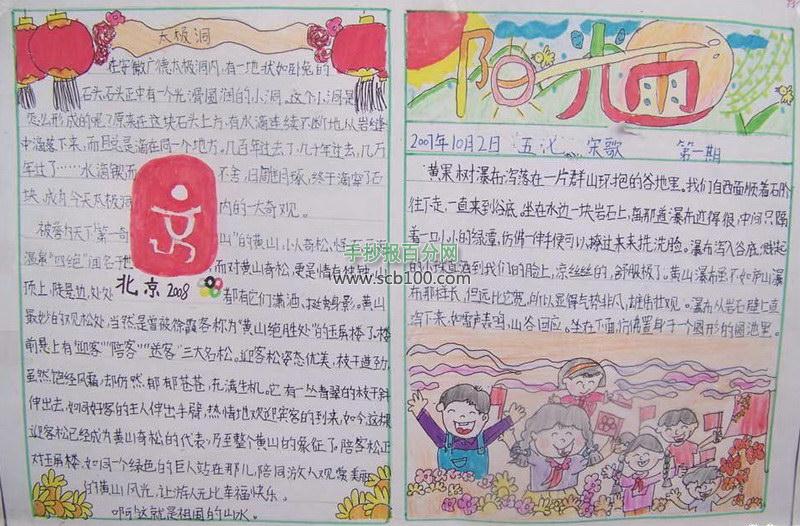 太极洞
在安徽广德太极洞内，有一块状如卧兔的
石头石头正中有一个光滑圆润的小洞。这个小洞是
怎么形成的呢？原来在这块石头上方，有水滴连续不断地从岩缝
中滴落下来，而且总是滴在同一个地方，几百年过去了，几千年过去，几万
年过了……水滴锲而不舍，日雕月琢，终于滴穿了石
块，成为今天太极洞内的大奇观。
被誉为天下第一奇山"的黄山，以奇松、怪
温泉"四绝"闻名于世而对黄山奇松，更是情有独钟
顶上，陡崖边，处处都有它们潇洒、挺秀身影。黄山
最妙的观松处，当然是曾被徐霞客称为"黄山绝胜处"的玉屏楼了。楼
前悬上有"迎客""陪客""送客"三大名松。迎客松姿态优美，枝干遒劲，
虽然饱经风霜，却仍然郁郁苍苍，充满生机。它有一丛青翠的枝干斜
伸出去，如同好客的主人伸出手臂，热情地欢迎宾客的到来。如今这棵
迎客松已经成为黄山奇松的代表，乃至整个黄山的象征了。陪客松正
对玉屏楼，如同一个绿色的巨人站在那儿，陪同游人观赏美丽
的黄山风光，让游人无比幸福快乐。
啊这就是祖国的山水。
北京2008
阳光雨
2007年10月2日 五 宋歌 第一期
黄果树瀑布泻落在一片群山环抱的谷地里。我们自西面顺着石阶
往下走，一直来到谷底，坐在水边一块岩石上，离那道瀑布近得很，中间只隔
着一口小小的绿潭，仿佛一伸手便可以捧过来洗洗脸。瀑布泻入谷底，溅起
的小水星洒到我们的脸上，凉丝丝的，舒服极了。黄山瀑布虽不如庐山瀑
布那样长，但远比它宽，所以显得气势非凡，雄伟壮观。瀑布从岩石壁上直
泻下来，如雷声轰鸣，山谷回应。坐在下面，仿佛置身于一个圆形的乐池里。
手抄报百分网
www.scb100.com